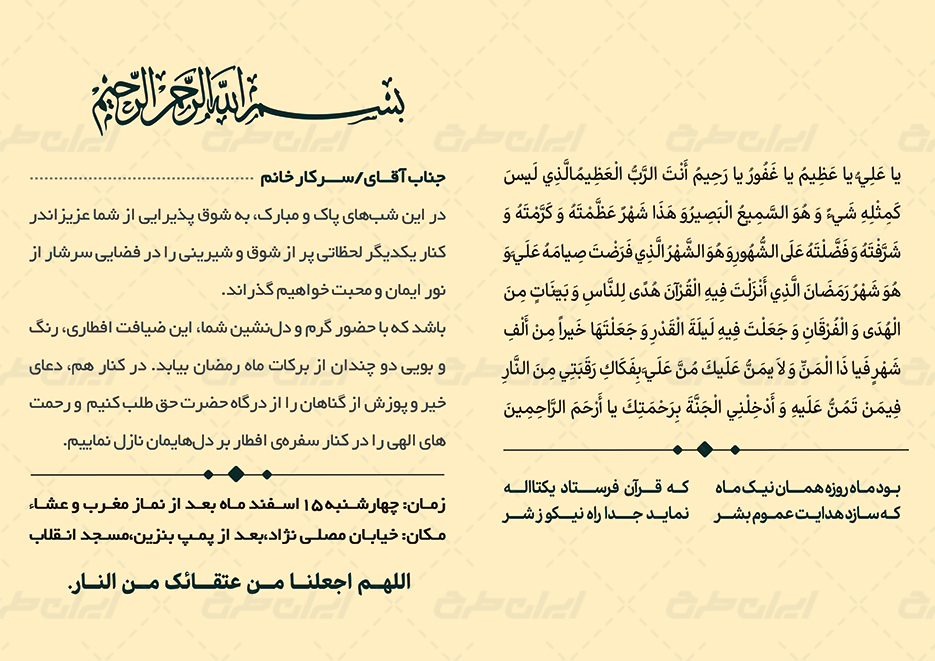 یا عَلِيُ یا عَظِیمُ یا غَفُورُ یا رَحِیمُ أَنْتَ الرَّبُّ الْعَظِیمُالَّذِي لَیسَ
کَمِثْلِهِ شَيءٌ وَ هُوَ السَّمِیعُ الْبَصِیرُوَ هَذَا شَهْرٌ عَظَّمْتَهُ وَ کَرَّمْتَهُ وَ
شَرَّفْتَهُ وَ فَضَّلْتَهُ عَلَی الشُّهُورِوَهُوَ الشَّهْرُ الَّذِي فَرَضْتَ صِیامَهُ عَلَيَوَ
هُوَ شَهْرُ رَمَضَانَ الَّذِي أَنْزَلْتَ فِیهِ الْقُرْآنَ هُدًی لِلنَّاسِ وَ بَینَاتٍ مِنَ
الْهُدَی وَ الْفُرْقَانِ وَ جَعَلْتَ فِیهِ لَیلَةَ الْقَدْرِ وَ جَعَلْتَهَا خَیراً مِنْ أَلْفِ
شَهْرٍ فَیا ذَا الْمَنِّ وَ لاَ یمَنُّ عَلَیكَ مُنَّ عَلَيَ بِفَکَاكِ رَقَبَتِي مِنَ النَّارِ
فِیمَنْ تَمُنُّ عَلَیهِ وَ أَدْخِلْنِي الْجَنَّةَ بِرَحْمَتِكَ یا أَرْحَمَ الرَّاحِمِینَ
بود ماه روزه همان نیک ماه که قرآن فرستاد یکتااله
که سازد هدایت عموم بشر نماید جدا راه نیکو ز شر
بسم الله الرحمن الرحیم
جناب آقای/سرکار خانم ........................................................
در این شب‌های پاک و مبارک، به شوق پذیرایی از شما عزیزاندر
کنار یکدیگر لحظاتی پر از شوق و شیرینی را در فضایی سرشار از
نور ایمان و محبت خواهیم گذراند.
باشد که با حضور گرم و دل‌نشین شما، این ضیافت افطاری، رنگ
و بویی دو چندان از برکات ماه رمضان بیابد. در کنار هم، دعای
خیر و پوزش از گناهان را از درگاه حضرت حق طلب کنیم و رحمت
های الهی را در کنار سفره‌ی افطار بر دل‌هایمان نازل نماییم.
زمان: چهارشنبه ۱۵ اسفند ماه بعد از نماز مغرب و عشاء
مکان: خیابان مصلی نژاد،بعد از پمپ بنزین،مسجد انقلاب
اللهم اجعلنا من عتقائک من النار.
ایران طرح